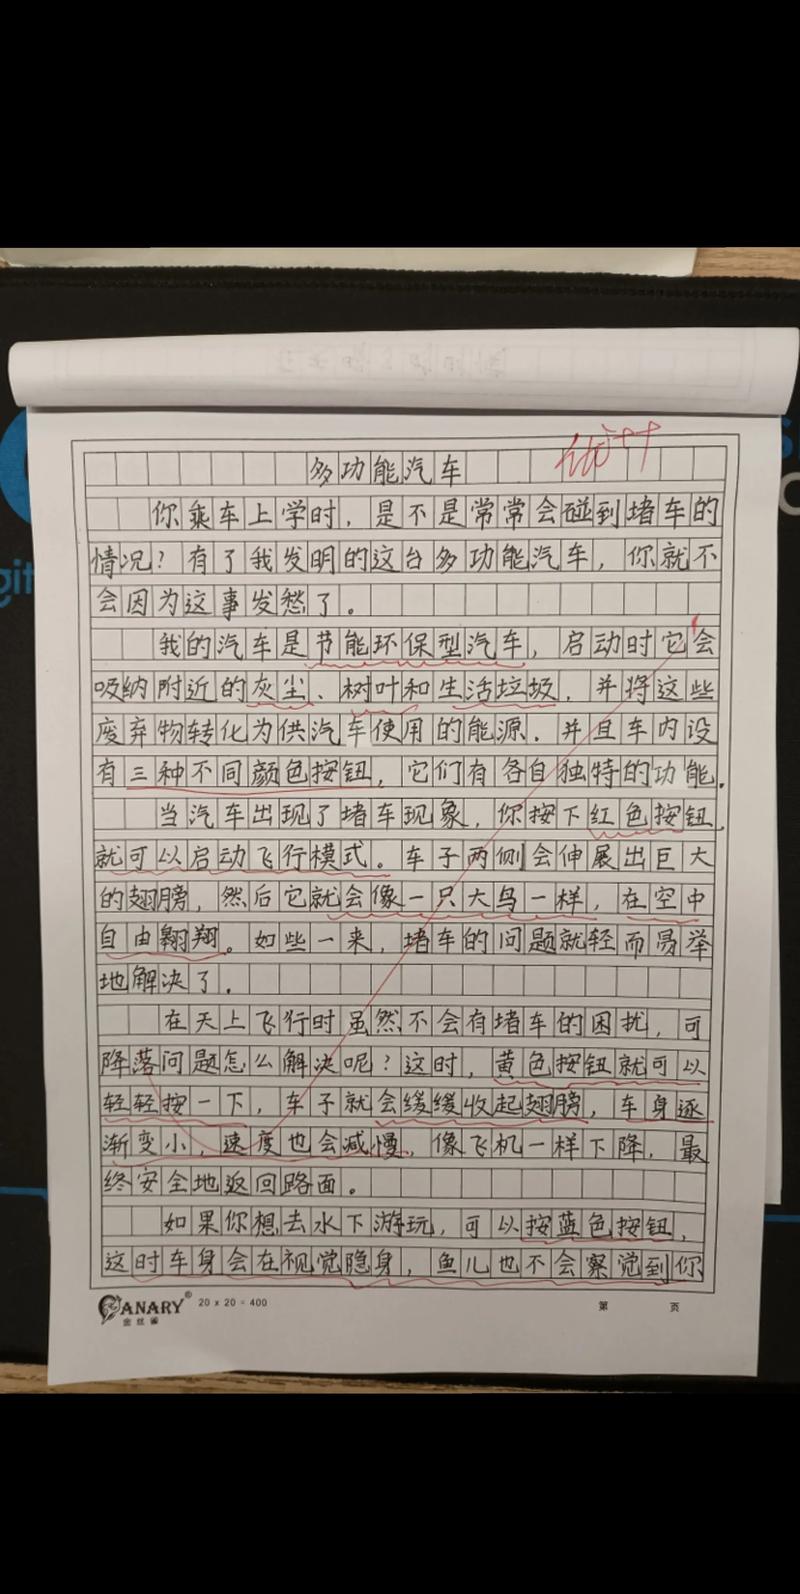 优++
多功能汽车
你乘车上学时，是不是常常会碰到堵车的
情况？有了我发明的这台多功能汽车，你就不
会因为这事发愁了。
我的汽车是节能环保型汽车，启动时它会
吸纳附近的灰尘、树叶和生活垃圾，并将这些
废弃物转化为供汽车使用的能源．并且车内设
有三种不同颜色按钮，它们有各自独特的功能．
当汽车出现了堵车现象，你按下红色按钮，
就可以启动飞行模式。车子两侧会伸展出巨大
的翅膀，然后它就会像一只大鸟一样，在空中
自由翱翔。如些一来，堵车的问题就轻而易举
地解决了．
在天上飞行时虽然不会有堵车的困扰，可
降落问题怎么解决呢？这时，黄色按钮就可以
轻轻按一下，车子就会缓缓收起翅膀，车身逐
渐变小，速度也会减慢，像飞机一样下降，最
终安全地返回路面。
如果你想去水下游玩，可以按蓝色按钮，
这时车身会在视觉隐身，鱼儿也不会察觉到你
CANARY® 20 x 20 = 400 第 页
金丝雀